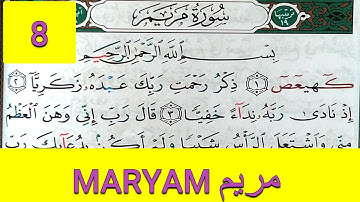 8
سُورَةُ مَرْيَمَ
بِسْمِ اللَّهِ الرَّحْمَٰنِ الرَّحِيمِ
كٓهيعٓصٓ ١ ذِكْرُ رَحْمَتِ رَبِّكَ عَبْدَهُۥ زَكَرِيَّآ ٢
إِذْ نَادَىٰ رَبَّهُۥ نِدَآءً خَفِيًّا ٣ قَالَ رَبِّ إِنِّى وَهَنَ الْعَظْمُ
مِنِّى وَاشْتَعَلَ الرَّأْسُ شَيْبًا وَلَمْ أَكُنۢ بِدُعَآئِكَ رَبِّ
MARYAM مريم